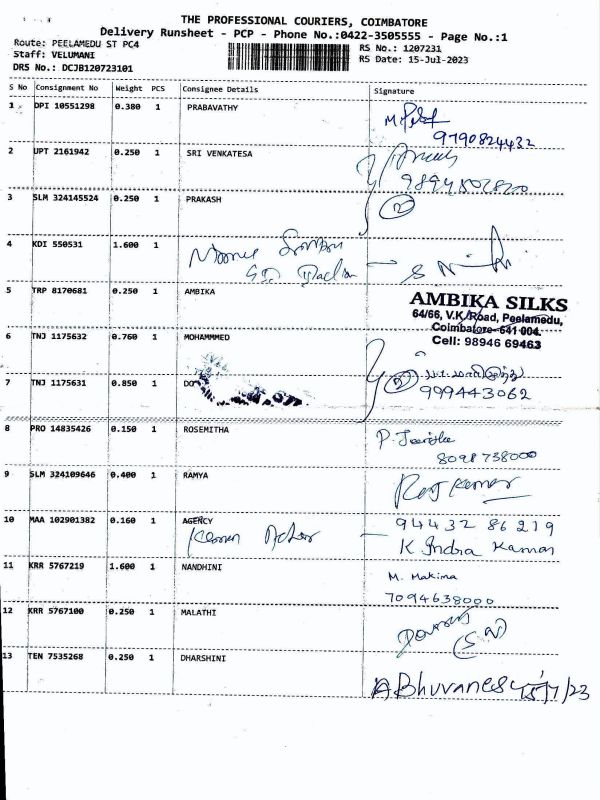 THE PROFESSIONAL COURIERS, COIMBATORE
Delivery Runsheet - PCP - Phone No.:0422-3505555 - Page No.:1
Route: PEELAMEDU ST PC4
RS No.: 1207231
Staff: VELUMANI
RS Date: 15-Jul-2023
DRS No.: DCJB120723101
S No Consignment No Weight PCS Consignee Details Signature
1 DPI 10551298 0.380 1 PRABAVATHY
9790824432
2 UPT 2161942 0.250 1 SRI VENKATESA
3 SLM 324145524 0.250 1 PRAKASH
2
4 KDI 550531 1.600 1
5 TRP 8170681 0.250 1 AMBIKA
AMBIKA SILKS
64/66, V.K. Road, Peelamedu,
Coimbatore-641 004.
Cell: 98946 69463
6 TNJ 1175632 0.760 1 MOHAMMMED
7 TNJ 1175631 0.850 1 DO
2
999443062
8 PRO 14835426 0.150 1 ROSEMITHA
8098738000
9 SLM 324109646 0.400 1 RAMYA
Raj Kumar
10 MAA 102901382 0.160 1 AGENCY
94432 86219
K. Indra Kumar
11 KRR 5767219 1.600 1 NANDHINI
M. Makima
7094638000
12 KRR 5767100 0.250 1 MALATHI
13 TEN 7535268 0.250 1 DHARSHINI
15/7/23